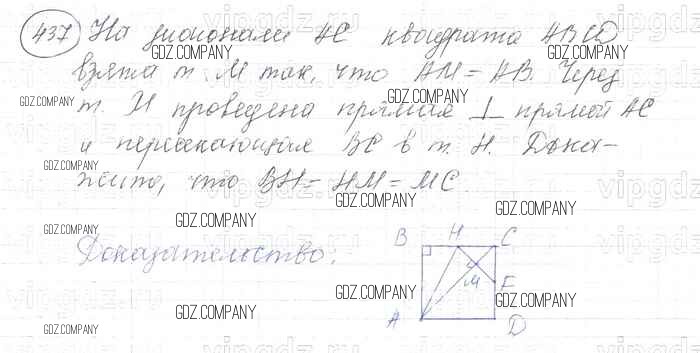 437 На диагонали AC квадрата ABCD
взята т. M так, что AM = AB. Через
т. M проведена прямая ⊥ прямой AC
и пересекающая BC в т. H. Дока-
жите, что BH = HM = MC.
Доказательство:
B H C
M E
A D
GDZ.COMPANY
GDZ.COMPANY
GDZ.COMPANY
GDZ.COMPANY
GDZ.COMPANY
GDZ.COMPANY
GDZ.COMPANY
GDZ.COMPANY
GDZ.COMPANY
GDZ.COMPANY
GDZ.COMPANY
GDZ.COMPANY
GDZ.COMPANY
GDZ.COMPANY